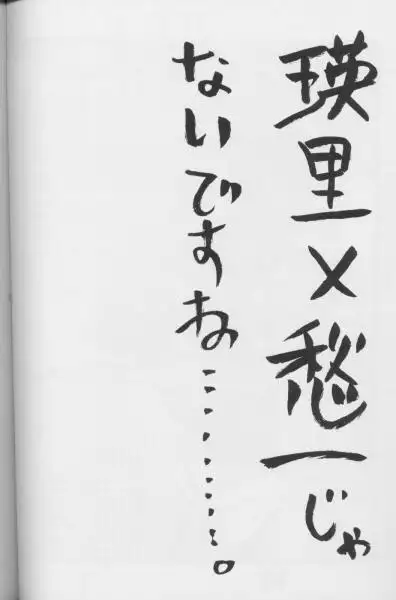 瑛里×愁一じゃ
ないですね………。